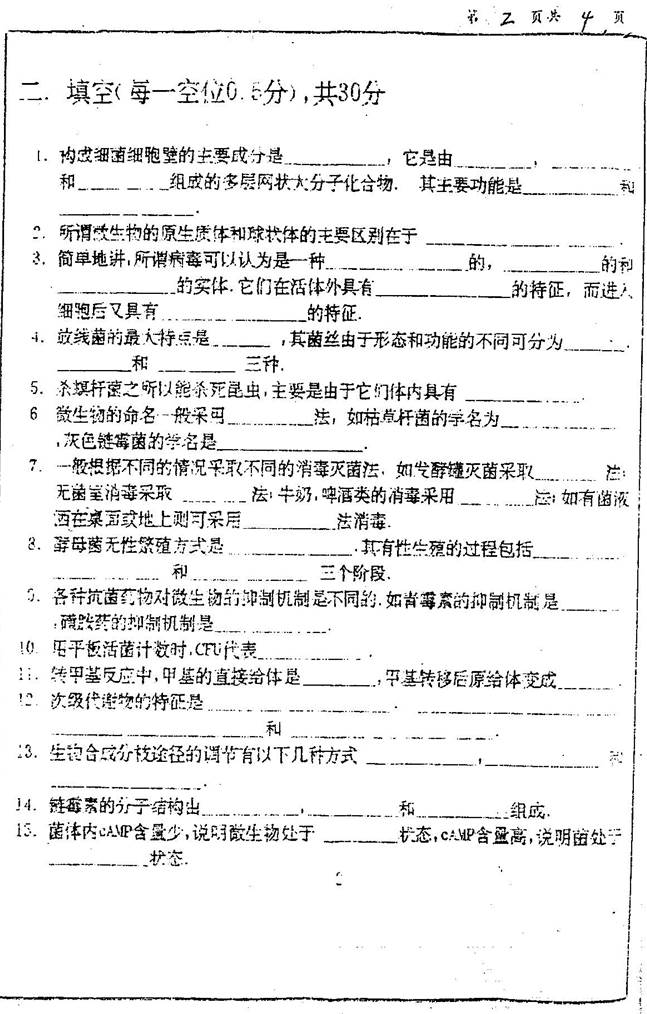 第 2 页共 4 页
二. 填空(每一空位0.5分),共30分
1. 构成细菌细胞壁的主要成分是____________,它是由__________,__________
和____________组成的多层网状大分子化合物. 其主要功能是____________和
________________.
2. 所谓微生物的原生质体和球状体的主要区别在于 ______________________
3. 简单地讲,所谓病毒可以认为是一种________________的,____________的和
____________的实体.它们在活体外具有________________的特征,而进入
细胞后又具有________________的特征.
4. 放线菌的最大特点是________,其菌丝由于形态和功能的不同可分为________.
________和 __________ 三种.
5. 杀螟杆菌之所以能杀死昆虫,主要是由于它们体内具有 ________________
6 微生物的命名一般采用__________法,如枯草杆菌的学名为______________
,灰色链霉菌的学名是________________.
7. 一般根据不同的情况采取不同的消毒灭菌法. 如发酵罐灭菌采取________ 法;
无菌室消毒采取 ________ 法;牛奶,啤酒类的消毒采用 ________法;如有菌液
洒在桌面或地上则可采用__________法消毒.
8. 酵母菌无性繁殖方式是 ______________.其有性生殖的过程包括__________
______________ 和______________ 三个阶段.
9. 各种抗菌药物对微生物的抑制机制是不同的.如青霉素的抑制机制是________
,磺胺药的抑制机制是______________.
10. 用平板活菌计数时,CFU代表____________.
11. 转甲基反应中,甲基的直接给体是________,甲基转移后原给体变成________.
12. 次级代谢物的特征是______________________.______________________
________________________和__________________________.
13. 生物合成分枝途径的调节有以下几种方式 ____________,______________和
__________________.
14. 链霉素的分子结构由____________,____________和__________组成.
15. 菌体内cAMP含量少,说明微生物处于 ________状态,cAMP含量高,说明菌处于
____________状态.
2